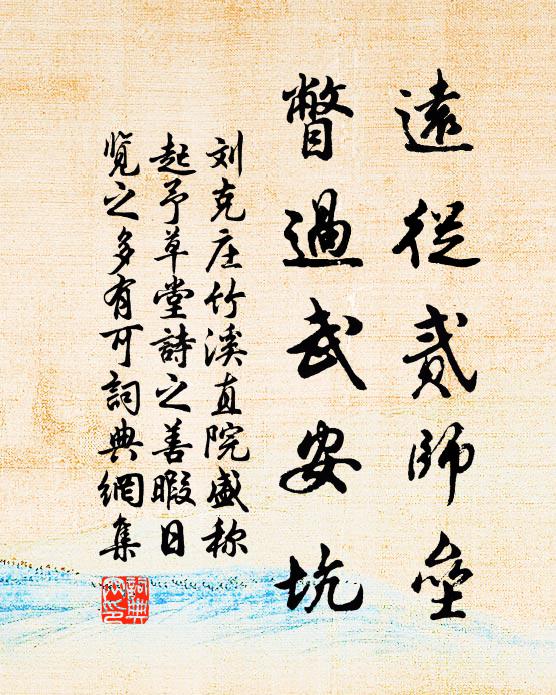 遠從貳師壘
瞥過武安坑
刘克庄竹溪直院盛称
起予草堂詩之善暇日
览之多有可詞典網集